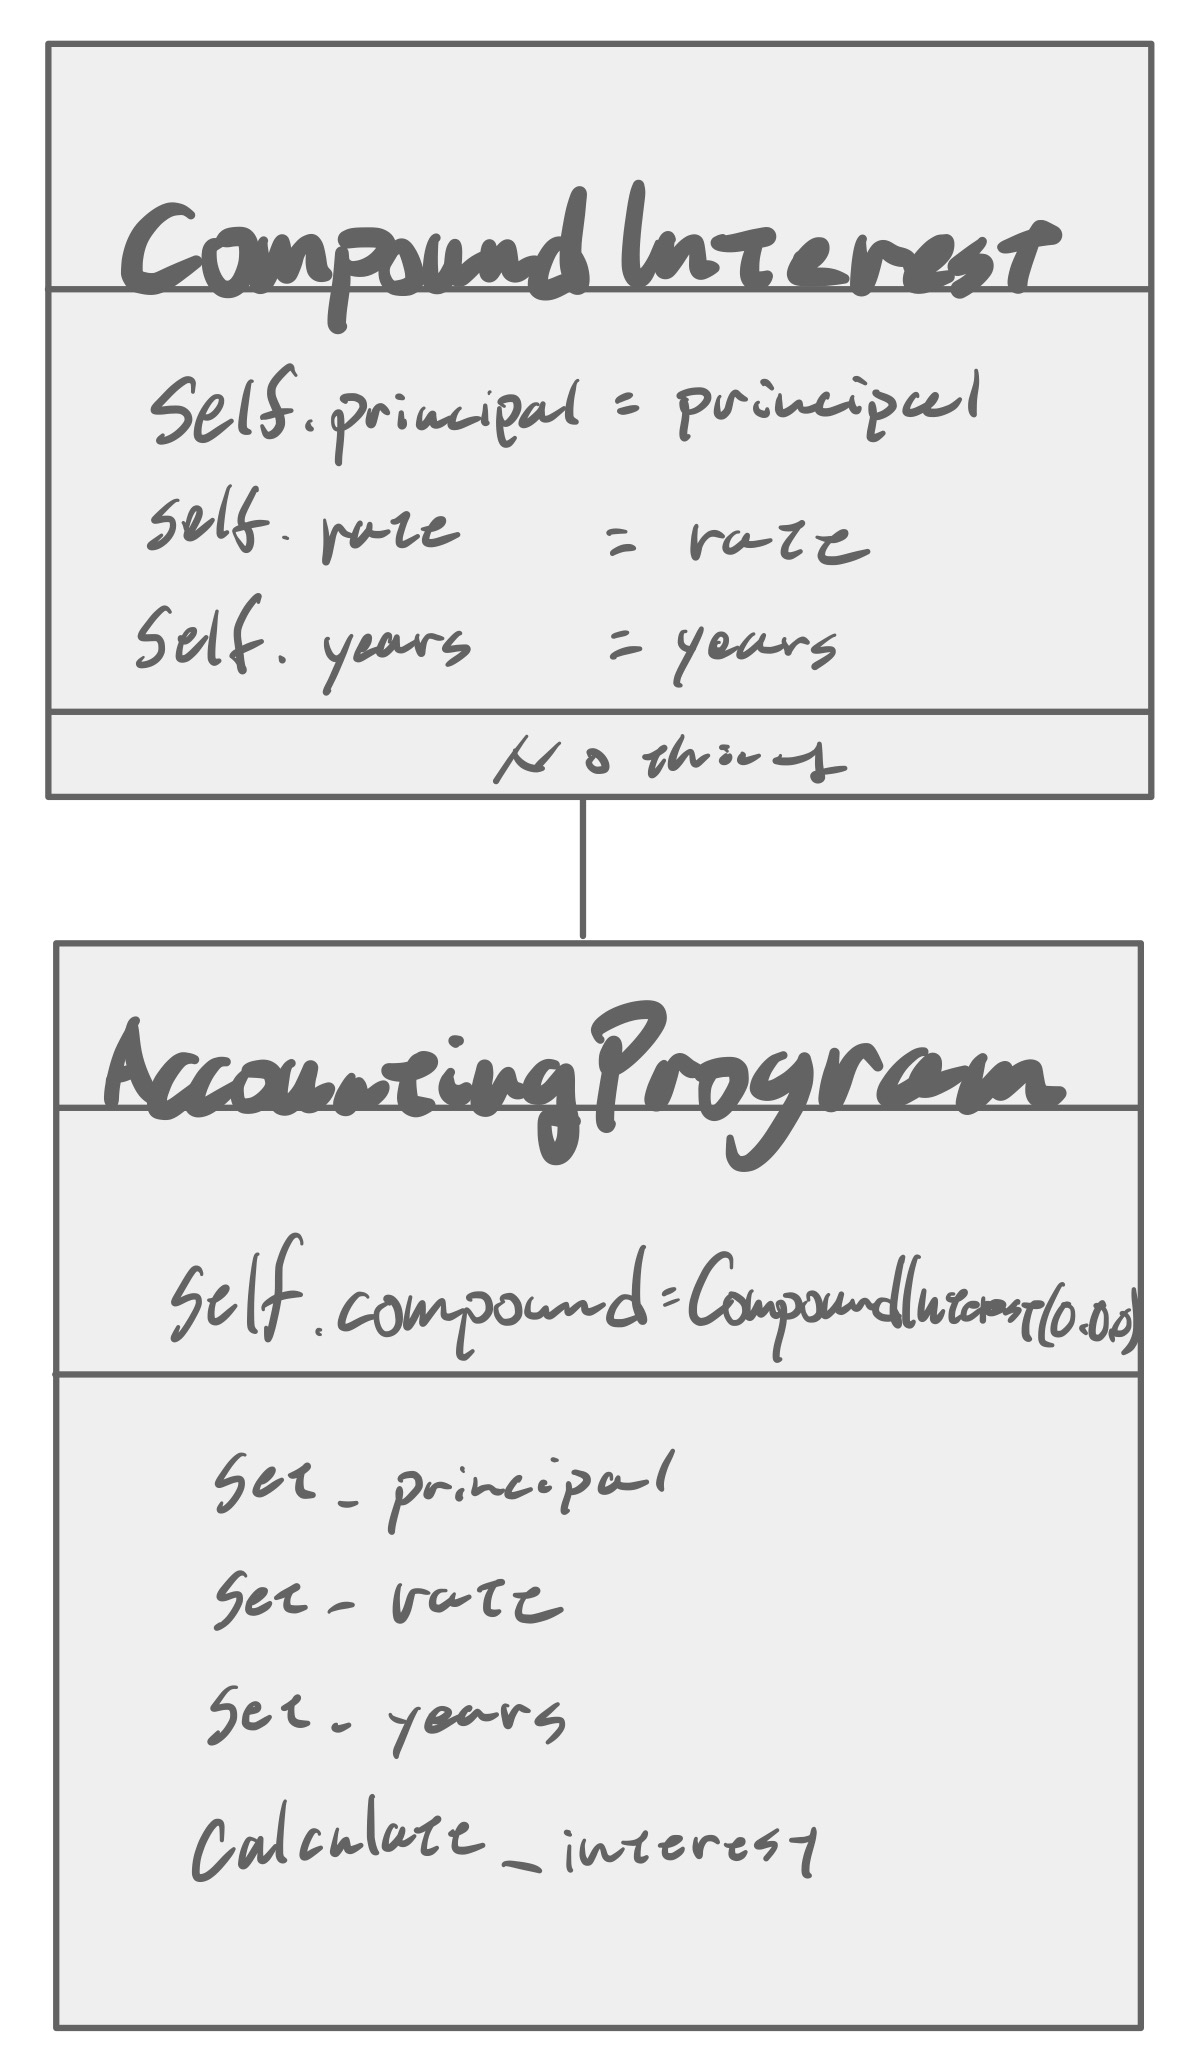 CompoundInterest
self.principal = principal
self.rate = rate
self.years = years
Nothing
AccountingProgram
self.compound=CompoundInterest(0.0.0)
set_principal
set_rate
set_years
calculate_interest